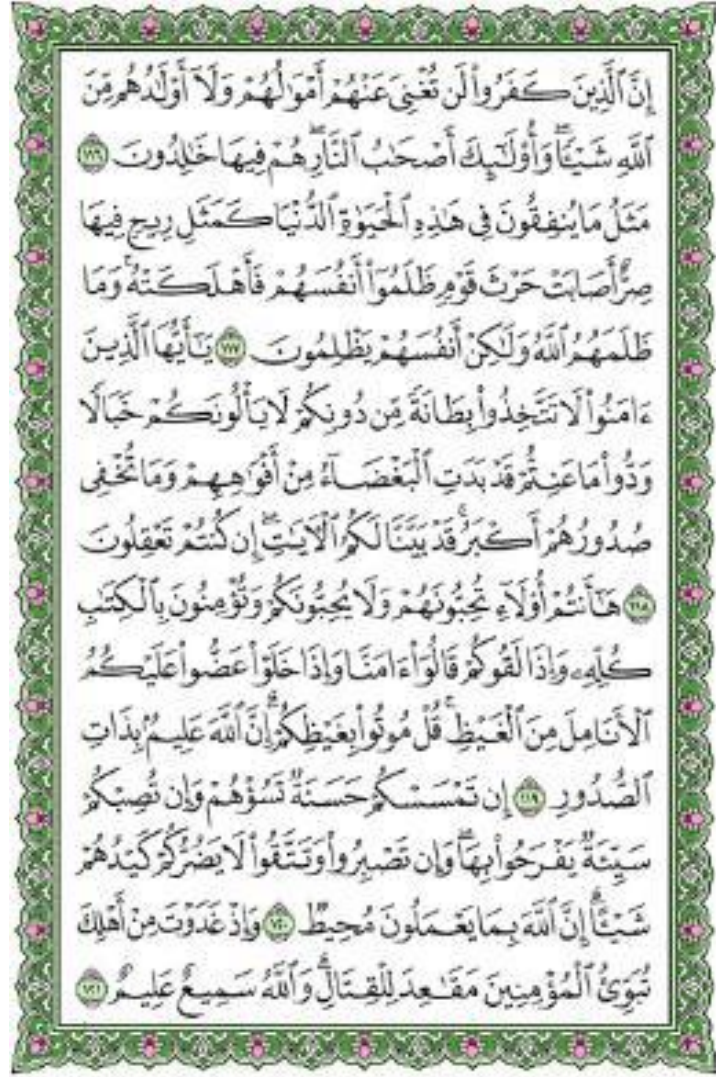 إِنَّ ٱلَّذِينَ كَفَرُوا۟ لَن تُغْنِىَ عَنْهُمْ أَمْوَٰلُهُمْ وَلَآ أَوْلَـٰدُهُم مِّنَ
ٱللَّهِ شَيْـًٔا ۖ وَأُو۟لَـٰٓئِكَ أَصْحَـٰبُ ٱلنَّارِ ۚ هُمْ فِيهَا خَـٰلِدُونَ ١١٦
مَثَلُ مَا يُنفِقُونَ فِى هَـٰذِهِ ٱلْحَيَوٰةِ ٱلدُّنْيَا كَمَثَلِ رِيحٍ فِيهَا
صِرٌّ أَصَابَتْ حَرْثَ قَوْمٍ ظَلَمُوٓا۟ أَنفُسَهُمْ فَأَهْلَكَتْهُ ۚ وَمَا
ظَلَمَهُمُ ٱللَّهُ وَلَـٰكِنْ أَنفُسَهُمْ يَظْلِمُونَ ١١٧ يَـٰٓأَيُّهَا ٱلَّذِينَ
ءَامَنُوا۟ لَا تَتَّخِذُوا۟ بِطَانَةً مِّن دُونِكُمْ لَا يَأْلُونَكُمْ خَبَالًا
وَدُّوا۟ مَا عَنِتُّمْ قَدْ بَدَتِ ٱلْبَغْضَآءُ مِنْ أَفْوَٰهِهِمْ وَمَا تُخْفِى
صُدُورُهُمْ أَكْبَرُ ۚ قَدْ بَيَّنَّا لَكُمُ ٱلْـَٔايَـٰتِ ۖ إِن كُنتُمْ تَعْقِلُونَ
١١٨ هَـٰٓأَنتُمْ أُو۟لَآءِ تُحِبُّونَهُمْ وَلَا يُحِبُّونَكُمْ وَتُؤْمِنُونَ بِٱلْكِتَـٰبِ
كُلِّهِۦ وَإِذَا لَقُوكُمْ قَالُوٓا۟ ءَامَنَّا وَإِذَا خَلَوْا۟ عَضُّوا۟ عَلَيْكُمُ
ٱلْأَنَامِلَ مِنَ ٱلْغَيْظِ ۚ قُلْ مُوتُوا۟ بِغَيْظِكُمْ ۗ إِنَّ ٱللَّهَ عَلِيمٌۢ بِذَاتِ
ٱلصُّدُورِ ١١٩ إِن تَمْسَسْكُمْ حَسَنَةٌ تَسُؤْهُمْ وَإِن تُصِبْكُمْ
سَيِّئَةٌ يَفْرَحُوا۟ بِهَا ۖ وَإِن تَصْبِرُوا۟ وَتَتَّقُوا۟ لَا يَضُرُّكُمْ كَيْدُهُمْ
شَيْـًٔا ۗ إِنَّ ٱللَّهَ بِمَا يَعْمَلُونَ مُحِيطٌ ١٢٠ وَإِذْ غَدَوْتَ مِنْ أَهْلِكَ
تُبَوِّئُ ٱلْمُؤْمِنِينَ مَقَـٰعِدَ لِلْقِتَالِ ۗ وَٱللَّهُ سَمِيعٌ عَلِيمٌ ١٢١